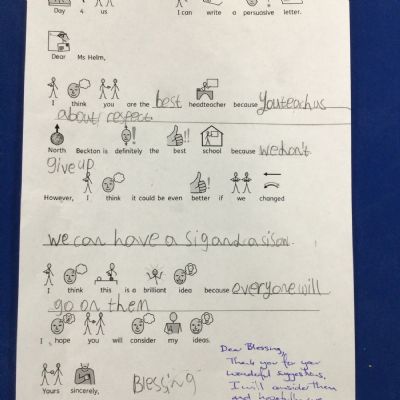 Day 4 us I can write a persuasive letter.
Dear Ms Helm,
I think you are the best headteacher because you teach us
about respect
North Beckton is definitely the best school because we don't
give up
However, I think it could be even better if we changed
we can have a sig and a sison.
I think this is a brilliant idea because everyone will
go on them
I hope you will consider my ideas.
Yours sincerely, Blessing
Dear Blessing,
Thank you for your
wonderful suggestions.
I will consider them
and hopefully we